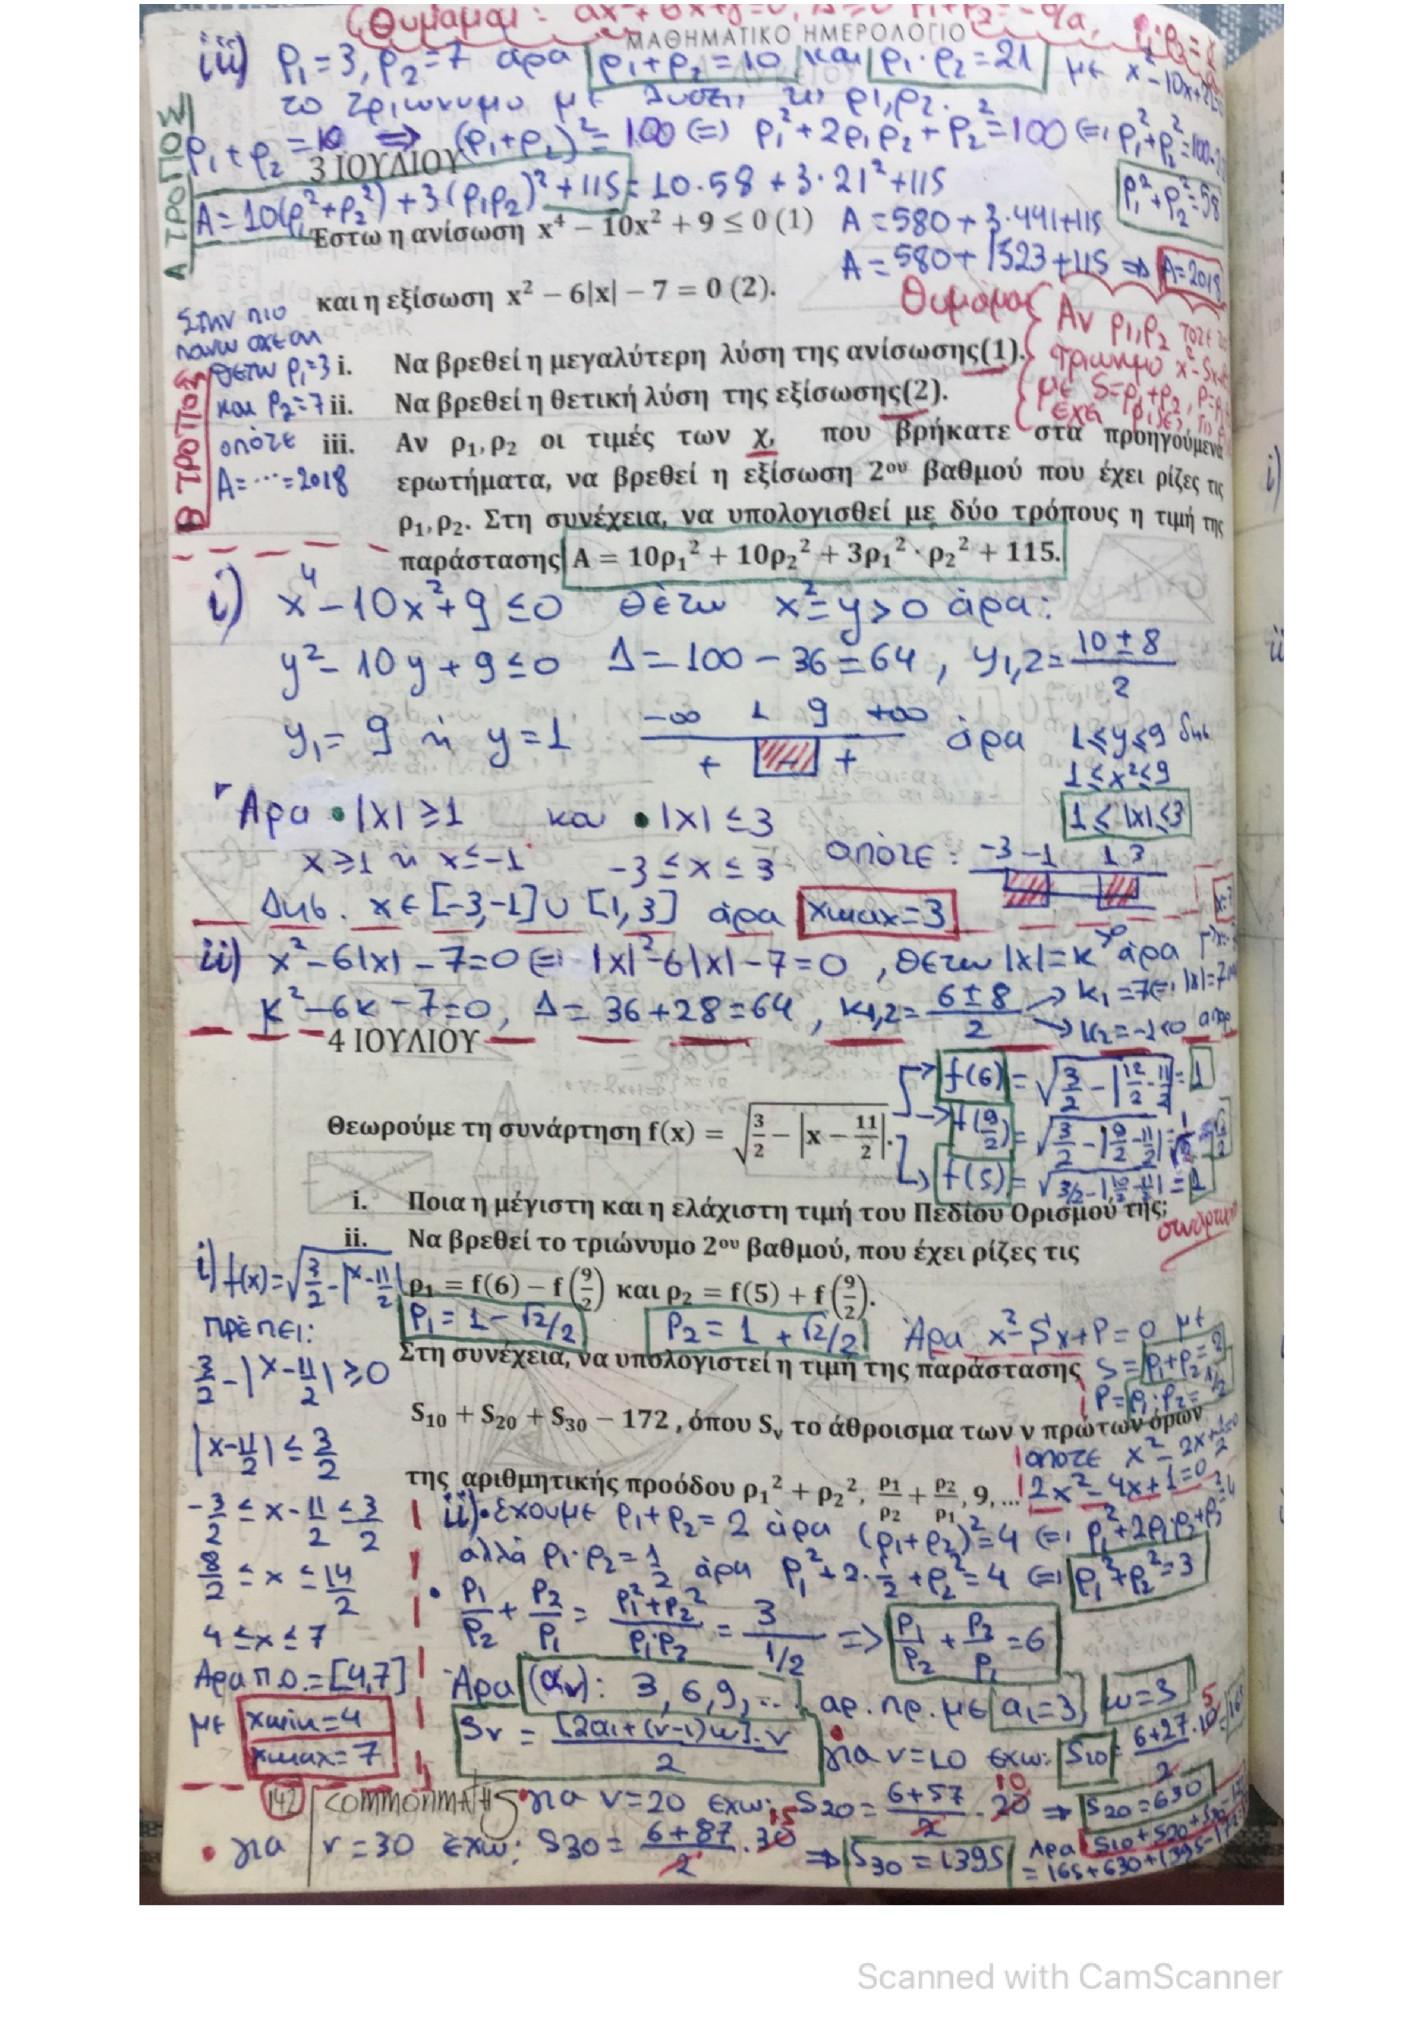 (Θυμάμαι: αx²+βx+γ=0,
ΜΑΘΗΜΑΤΙΚΟ ΗΜΕΡΟΛΟΓΙΟ
iii) ρ₁=3, ρ₂=7 άρα ρ₁+ρ₂=10 και ρ₁·ρ₂=21 με x²-10x+21=0
το τριώνυμο με λύσεις τις ρ1, ρ2.
ρ₁+ρ₂=10 ⇒ (ρ₁+ρ₂)²=100 (=) ρ₁²+2ρ₁ρ₂+ρ₂²=100 (=) ρ₁²+ρ₂²=100-
ρ₁²+ρ₂²=58
Α ΤΡΟΠΟΣ
3 ΙΟΥΛΙΟΥ
A=10(ρ₁²+ρ₂²)+3(ρ₁ρ₂)²+115=10·58+3·21²+115
Έστω η ανίσωση x⁴ − 10x² + 9 ≤ 0 (1)
A=580+3·441+115
A=580+1323+115 ⇒ A=2018
και η εξίσωση x² − 6|x| − 7 = 0 (2).
Θυμάμαι { Αν ρ1,ρ2 τότε το
τριώνυμο x²-Sx+
με S=ρ₁+ρ₂, P=ρ
έχει ρίζες τις
Στην πιο
πάνω σχέση
θέτω ρ₁=3
και ρ₂=7
οπότε
A=...=2018
Β ΤΡΟΠΟΣ
i. Να βρεθεί η μεγαλύτερη λύση της ανίσωσης(1).
ii. Να βρεθεί η θετική λύση της εξίσωσης(2).
iii. Αν ρ₁,ρ₂ οι τιμές των χ, που βρήκατε στα προηγούμενα
ερωτήματα, να βρεθεί η εξίσωση 2ου βαθμού που έχει ρίζες τις
ρ₁,ρ₂. Στη συνέχεια, να υπολογισθεί με δύο τρόπους η τιμή της
παράστασης A = 10ρ₁² + 10ρ₂² + 3ρ₁² · ρ₂² + 115.
i) x⁴-10x²+9≤0 θέτω x²=y>0 άρα:
y²-10y+9≤0 Δ=100-36=64, y1,2=(10±8)/2
y₁=9 ή y=1 -∞ 1 9 +∞ άρα 1≤y≤9 δηλ.
+ - +
1≤x²≤9
1≤|x|≤3
Άρα •|x|≥1 και •|x|≤3
x≥1 ή x≤-1 -3≤x≤3 οπότε: -3 -1 1 3
Δηλ. x∈[-3,-1]∪[1,3] άρα xmax=3
ii) x²-6|x|-7=0 (=) |x|²-6|x|-7=0, θέτω |x|=κ>0 άρα
κ²-6κ-7=0, Δ=36+28=64, κ1,2=(6±8)/2 → κ₁=7(=) |x|=7
→ κ₂=-1<0 απορ
4 ΙΟΥΛΙΟΥ
f(6)=√(3/2-|12/2-11/2|)=1
Θεωρούμε τη συνάρτηση f(x) = √(3/2 − |x − 11/2|).
f(9/2)=√(3/2-|9/2-11/2|)=
f(5)=√(3/2-|10/2-11/2|)=1
i. Ποια η μέγιστη και η ελάχιστη τιμή του Πεδίου Ορισμού της;
ii. Να βρεθεί το τριώνυμο 2ου βαθμού, που έχει ρίζες τις
ρ₁ = f(6) − f(9/2) και ρ₂ = f(5) + f(9/2).
ρ₁=1-√2/2 ρ₂=1+√2/2 Άρα x²-Sx+P=0 με
S=ρ₁+ρ₂=2
P=ρ₁·ρ₂=1/2
Στη συνέχεια, να υπολογιστεί η τιμή της παράστασης
S₁₀ + S₂₀ + S₃₀ − 172 , όπου Sᵥ το άθροισμα των ν πρώτων όρων
οπότε x²-2x+1/2=0
της αριθμητικής προόδου ρ₁² + ρ₂², ρ₁/ρ₂ + ρ₂/ρ₁, 9, ...
2x²-4x+1=0
i) f(x)=√(3/2-|x-11/2|)
πρέπει:
3/2-|x-11/2|≥0
|x-11/2|≤3/2
-3/2≤x-11/2≤3/2
8/2≤x≤14/2
4≤x≤7
Άρα π.ο.=[4,7]
με xmin=4
xmax=7
ii)• έχουμε ρ₁+ρ₂=2 άρα (ρ₁+ρ₂)²=4 (=) ρ₁²+2ρ₁ρ₂+ρ₂²=4
αλλά ρ₁·ρ₂=1/2 άρα ρ₁²+2·1/2+ρ₂²=4 (=) ρ₁²+ρ₂²=3
• ρ₁/ρ₂+ρ₂/ρ₁=(ρ₁²+ρ₂²)/(ρ₁ρ₂)=3/(1/2) ⇒ ρ₁/ρ₂+ρ₂/ρ₁=6
Άρα (αν): 3,6,9,... αρ. πρ. με α₁=3, ω=3
Sν=[2α₁+(ν-1)ω]·ν/2 • για ν=10 έχω: S10=(6+27)/2·10 5 =165
142 COMMONMATHS • για ν=20 έχω: S20=(6+57)/2·20 10 ⇒ S20=630
• για ν=30 έχω: S30=(6+87)/2·30 15 ⇒ S30=1395 Άρα S10+S20+
=165+630+1395-
Scanned with CamScanner